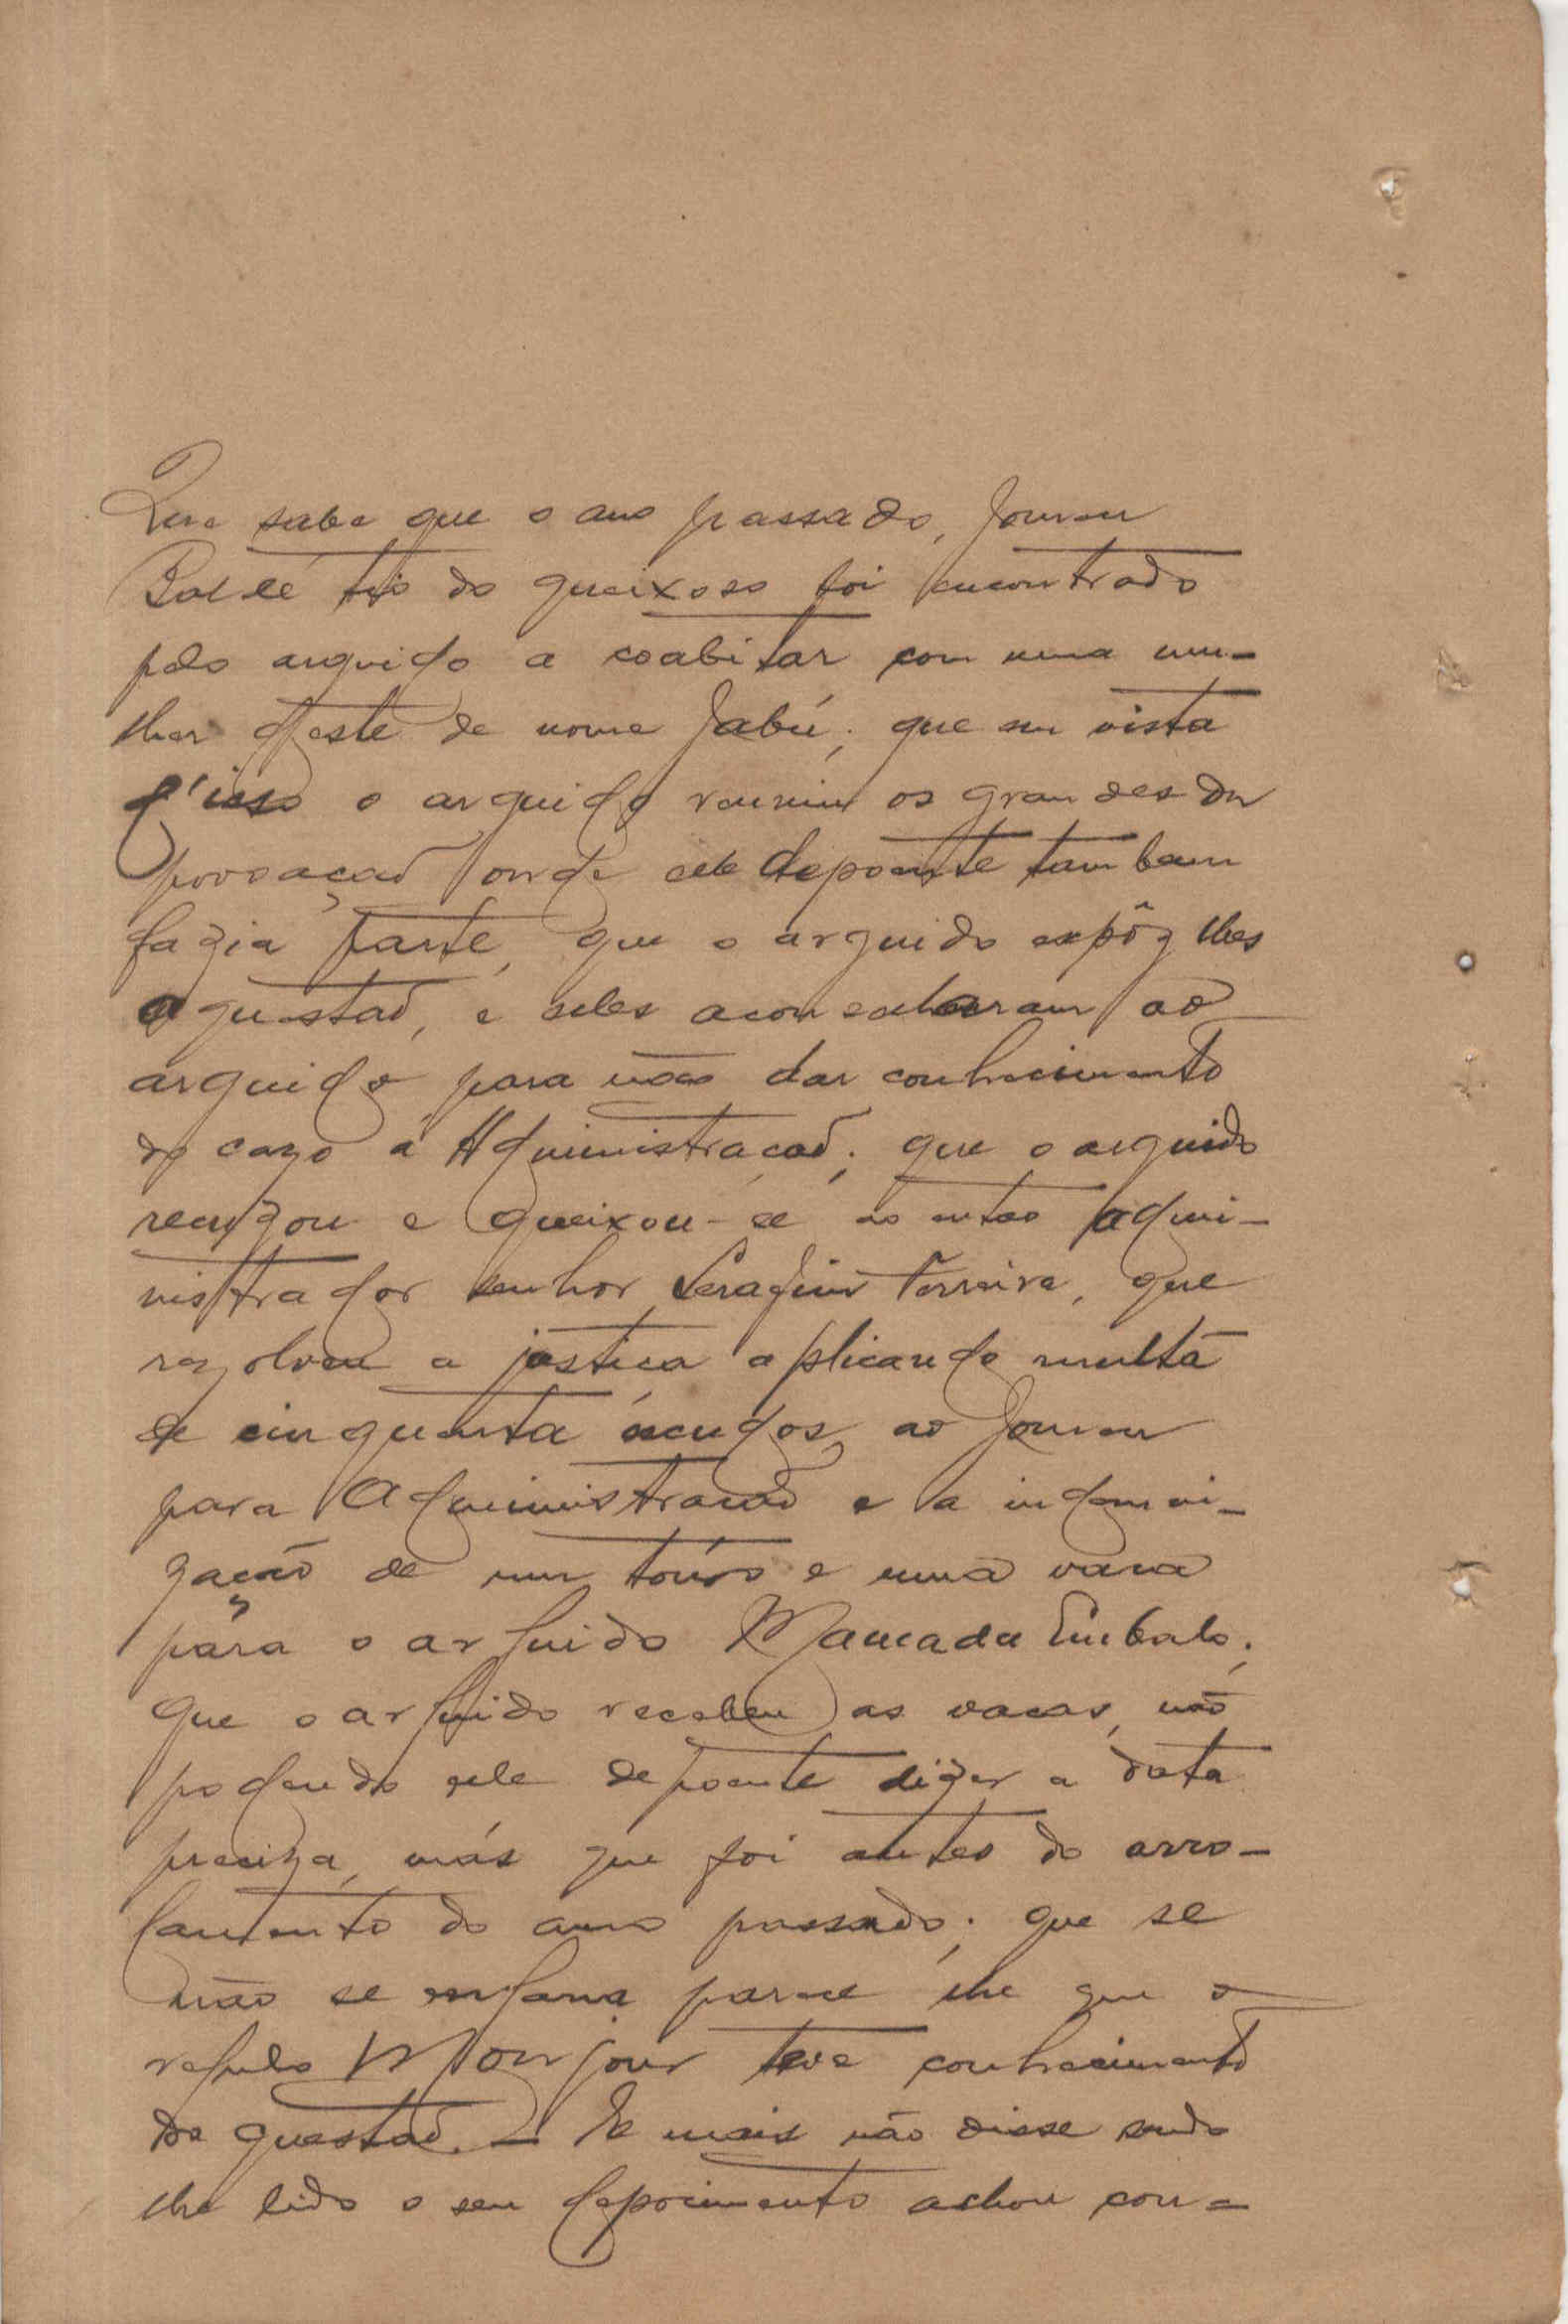 Que sabe que o ano passado, Jouncu
Baldé tio do queixoso foi encontrado
pelo arguido a coabitar com uma mu-
lher deste de nome Jabú; que em vista
d'isso o arguido reuniu os grandes da
povoação onde ele depoente tambem
fazia parte, que o arguido expôz lhes
a questão, e eles aconselharam ao
arguido para não dar conhecimento
do cazo á Administração; que o arguido
recuzou e queixou-se ao então admi-
nistrador senhor Serafim Ferreira, que
rezolveu a justica aplicando multa
de cinquenta escudos, ao Jouncu
para Administração e a indemni-
zação de um touro e uma vaca
para o arguido Mamadu Embalo;
que o arguido recebeu as vacas, não
podendo ele depoente dizer a data
preciza, más que foi antes do arro-
lamento do ano passado; que se
não se engana parece lhe que o
regulo Monjour teve conhecimento
da questão. — E mais não disse sendo
lhe lido o seu depoimento achou con=